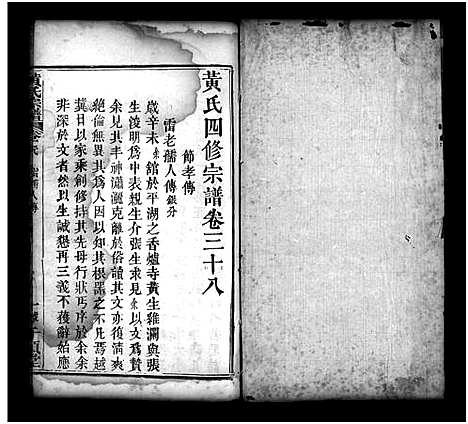 黃氏四修宗譜卷三十八
節孝傳
雷老孺人傳 銀分
歲辛未余館於平湖之香爐寺黃生雞瀾與張
生浚明爲中表親生介張生求見余以文爲贄
余見其丰神瀟灑克離於俗讀其文亦復清爽
絕倫無異其爲人因叩其根源不凡焉越
冀日以家乘創修持其先母行狀丐序於余余
非深於文者然以生誠懇再三義不獲辭始應